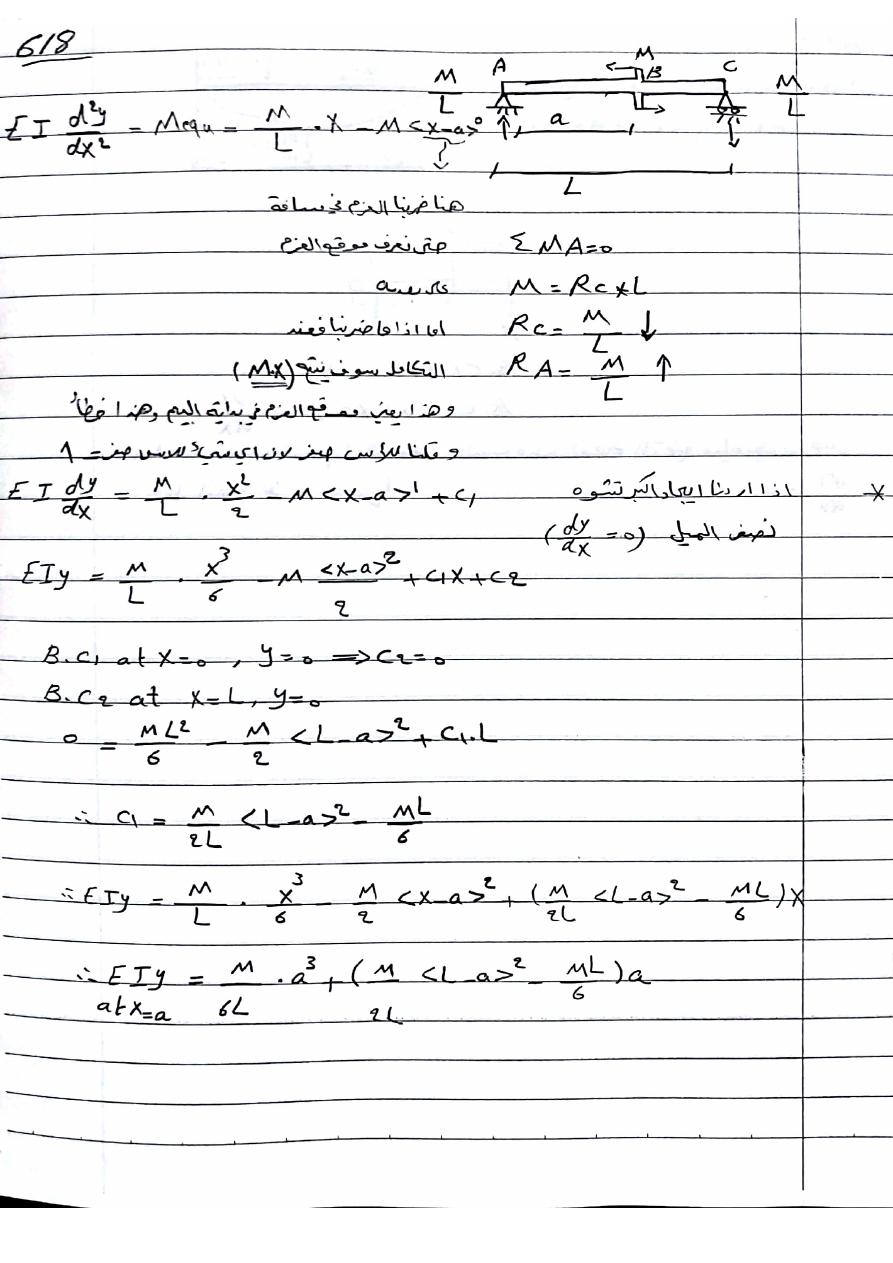 618
M/L A M B C M/L
EI d²y/dx² = Mequ = M/L . X - M <x-a>⁰
a
L
هنا ضربنا العزم في مسافة
حتى نعرف موقع العزم ΣMA=0
على بعد a M = Rc*L
اما اذا ما ضربنا فعند Rc = M/L ↓
التكامل سوف ينتج (M.X) RA = M/L ↑
وهذا يعني موقع العزم في بداية البيم وهذا خطأ
و قلنا للأس صفر لان اي شيء للاس صفر = 1
EI dy/dx = M/L . x²/2 - M<x-a>¹ + C1 اذا اردنا ايجاد اكبر تشوه *
نصف الميل (dy/dx = 0)
EIy = M/L . x³/6 - M <x-a>²/2 + C1X + C2
B.C1 at X=0 , y=0 => C2=0
B.C2 at X=L, y=0
0 = ML²/6 - M/2 <L-a>² + C1.L
∴ C1 = M/2L <L-a>² - ML/6
∴ EIy = M/L . x³/6 - M/2 <x-a>² + (M/2L <L-a>² - ML/6)X
∴ EIy at x=a = M/6L . a³ + (M/2L <L-a>² - ML/6)a